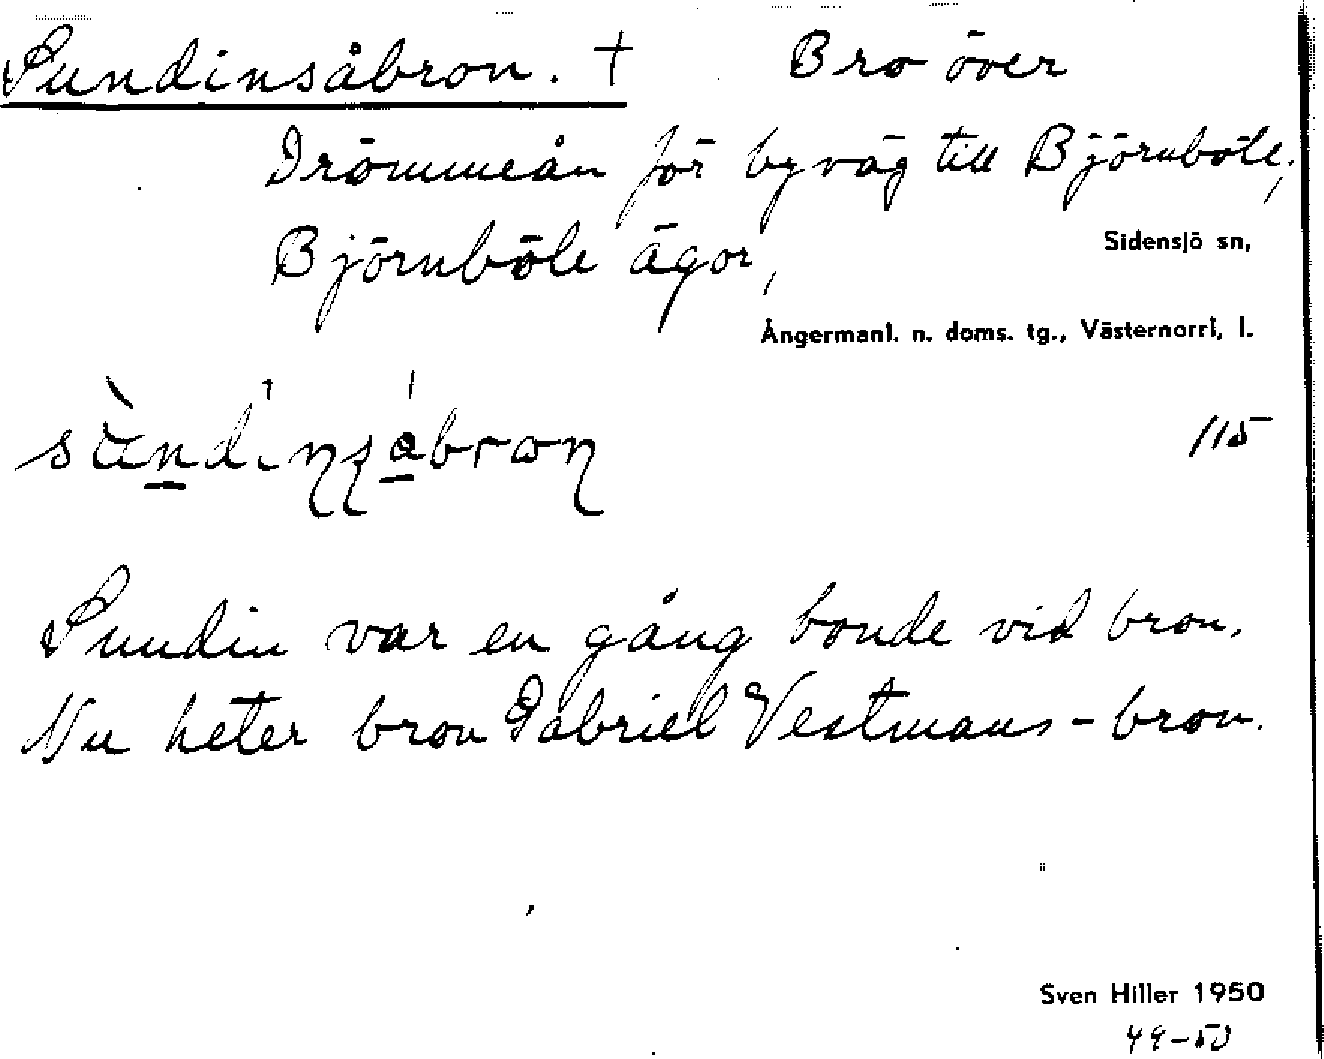 Sundinsåbron. † Bro över
Drömmeån för byväg till Björnböle;
Björnböle ägor,
Sidensjö sn,
Ångermanl. n. doms. tg., Västernorrl. l.
115
Sundin var en gång bonde vid bron.
Nu heter bron Gabriel Vestmans-bron.
Sven Hiller 1950
49-50